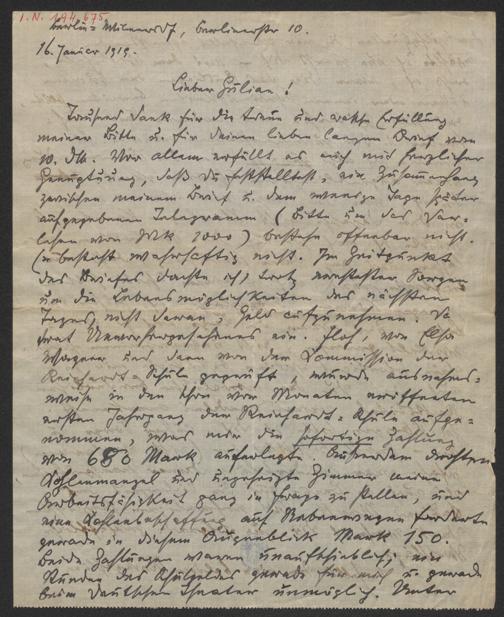 I.N. 194.675
Berlin-Wilmersdf, Berlinerstr 10.
16. Januar 1919.
Lieber Julian!
Tausend Dank für die treue und rasche Erfüllung
meiner Bitte u. für deinen lieben langen Brief vom
10. ds. Vor allem erfüllt es mich mit herzlicher
Genugtuung, daß Du feststelltest, ein Zusammenhang
zwischen meinem Brief u. dem wenige Tage später
aufgegebenen Telegramm (Bitte um das Dar-
lehen von Mk 1000) bestehe offenbar nicht.
Er besteht wahrhaftig nicht. Im Zeitpunkt
des Briefes dachte ich, trotz ernstester Sorgen
um die Lebensmöglichkeiten des nächsten
Tages, nicht daran, Geld aufzunehmen. Da
trat Unvorhergesehenes ein. von
und dann von der Commission der
Reichardt-Schule geprüft, wurde ausnahms-
weise in den schon vor Monaten eröffneten
ersten Jahrgang der Reinhardt-Schule aufge-
nommen, was mir die sofortige Zahlung
von 680 Mark auferlegte. Außerdem drohten
Kohlenmangel und ungeheizte Zimmer meine
Arbeitsfähigkeit ganz in Frage zu stellen, und
eine Kohlenbeschaffung auf Nebenwegen forderte
gerade in diesem Augenblick Mark 150.
Beide Zahlungen waren unaufschieblich; ein
Stunden des Schulgeldes gerade für mich u. gerade
beim Deutschen Theater unmöglich. Unter